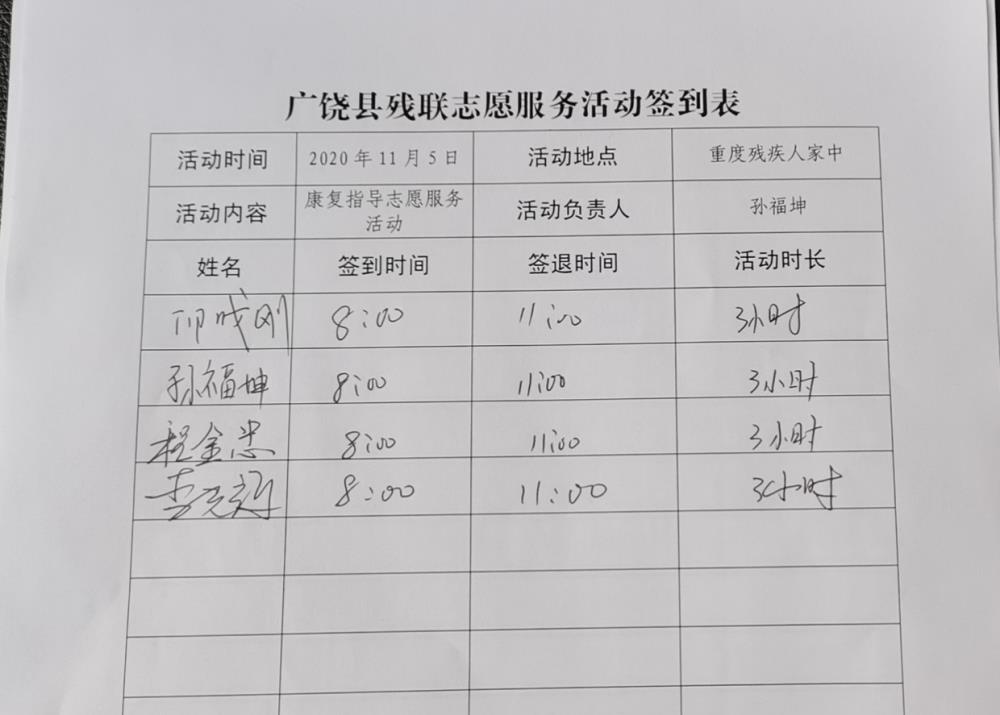 广饶县残联志愿服务活动签到表
活动时间 2020年11月5日 活动地点 重度残疾人家中
活动内容 康复指导志愿服务 活动负责人 孙福坤
活动
姓名 签到时间 签退时间 活动时长
8:00 11:00 3小时
孙福坤 8:00 11:00 3小时
程金忠 8:00 11:00 3小时
8:00 11:00 3小时